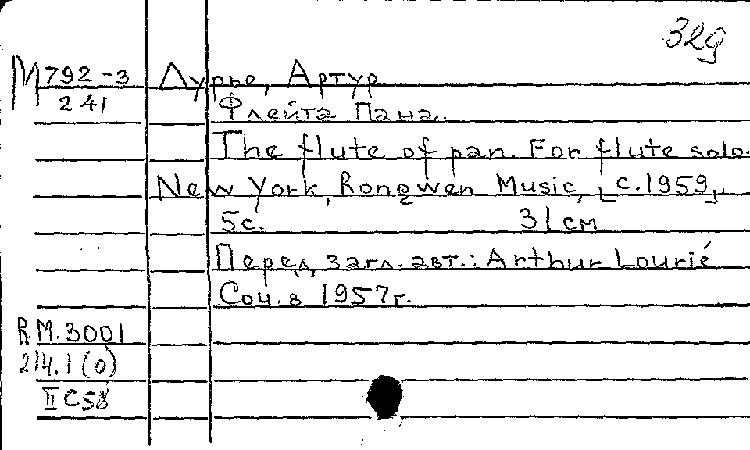 329
М 792-3 Лурье, Артур
241
Флейта Пана.
The flute of pan. For flute solo.
New York, Rongwen Music, [c.1959]
5с. 31 см
Перед загл. авт.: Arthur Lourié
Соч. в 1957г.
R M.3001
214.1 (0)
II C58